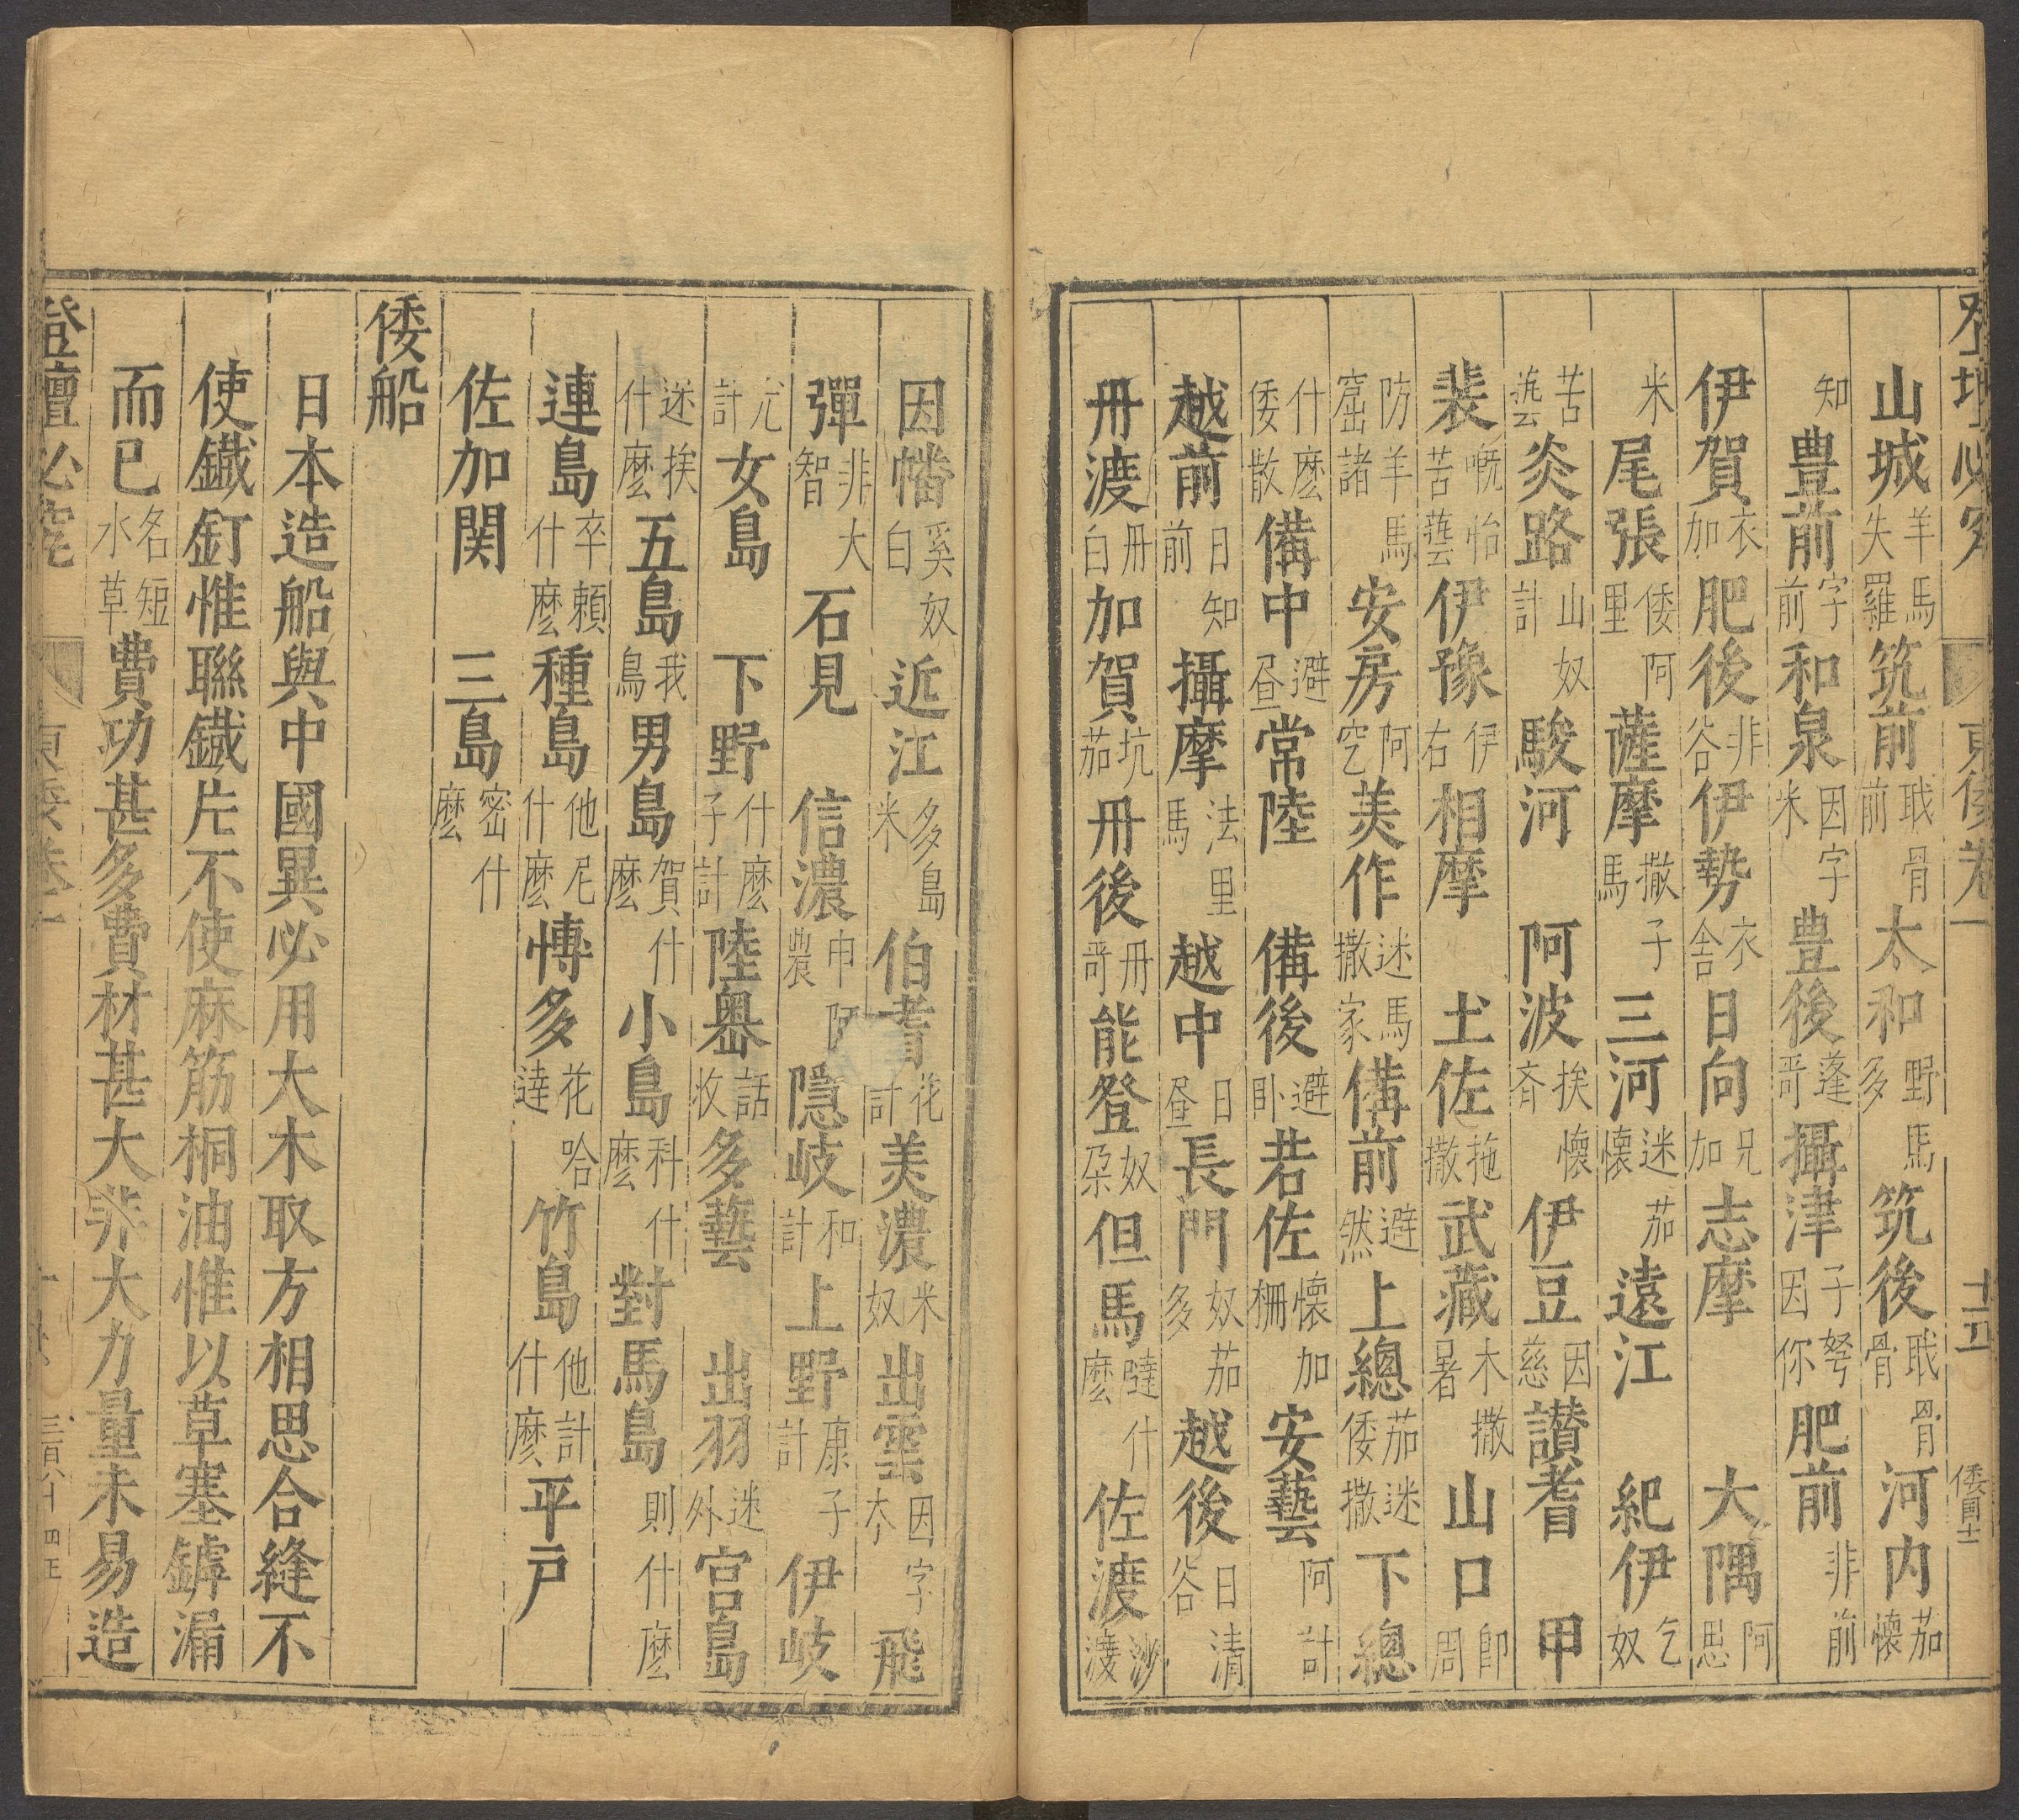 登壇必究 東倭卷一 十五 倭員十一
山城羊馬失羅筑前戢骨前太和野馬多筑後戢骨骨河内茄懷
知豊前字前和泉因字米豊後蓬哥攝津子弩因你肥前非前
伊賀衣加肥後非谷伊勢衣舍日向兄加志摩 大隅阿思
米尾張倭阿里薩摩撒子馬三河迷茄懷遠江 紀伊乞奴
苦藝炎路山奴計駿河 阿波挨懷斉伊豆因慈讃耆 甲
裴嘅怡苦藝伊豫伊右相摩 土佐拖撒武藏木撒暑山口即周
防羊馬窟諸安房阿空美作迷馬撒家備前避然上總茄迷倭撒下總
什麽倭散備中避昼常陸 備後避卧若佐懷加柵安藝阿計
越前日知前攝摩法里馬越中日昼長門奴茄多越後日清谷
冊渡冊白加賀坑茄冊後冊哥能登奴朶但馬韃什麽佐渡沙渡
因幡奚奴白近江多島米伯耆花計美濃米奴出雲因字木飛
彈非大智石見 信濃申阿農隱岐和計上野康子計伊岐
尤計女島 下野什麽子計陸奥話收多藝 出羽迷外宮島
迷挨什麽五島我鳥男島賀什麽小島科什麽對馬島則什麽
連島卒頼什麽種島他尼什麽慱多花哈達竹島他計什麽平戸
佐加関 三島密什麽
倭船
日本造船與中國異必用大木取方相思合縫不
使鐵釘惟聯鐵片不使麻筋桐油惟以草塞罅漏
而已名短水草費功甚多費材甚大非大力量未易造
登壇必究 東倭卷一 三百八十四正